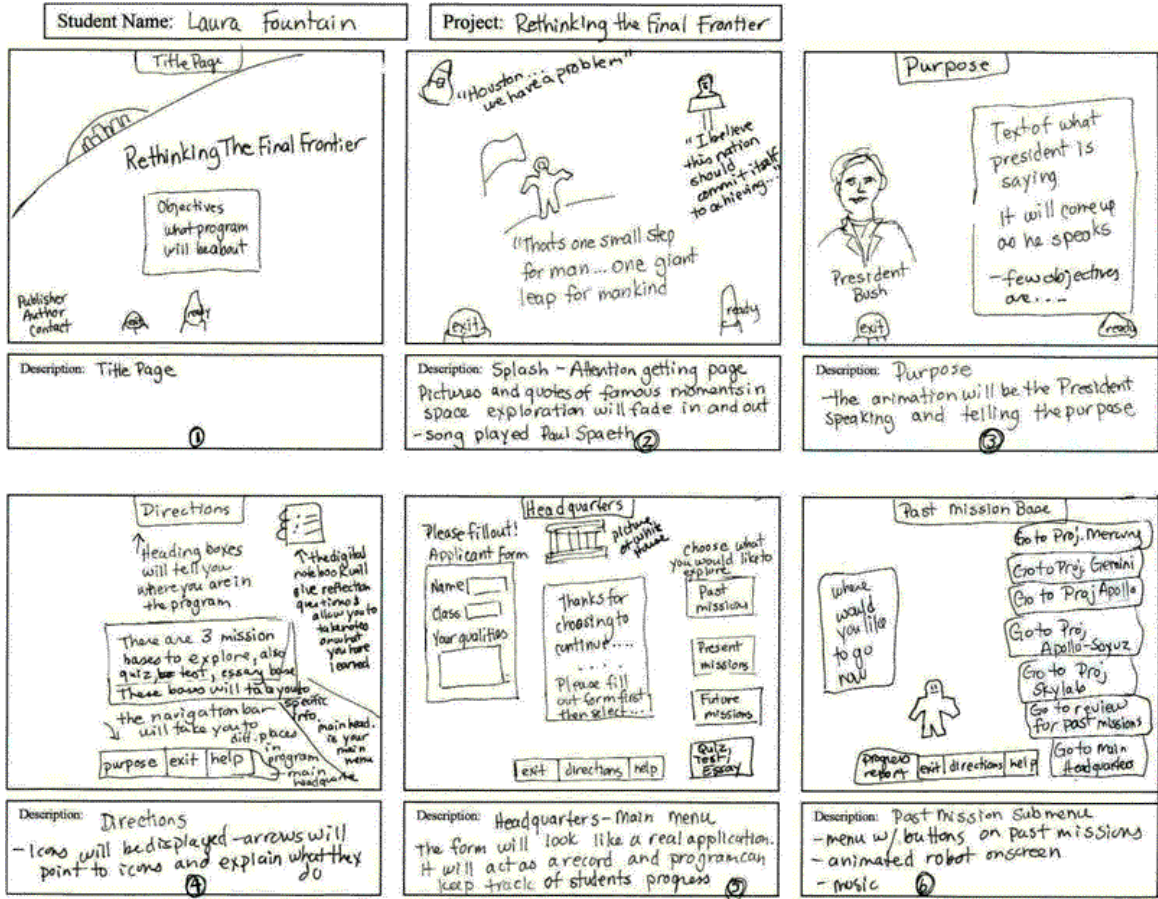 Student Name: Laura Fountain
Project: Rethinking the Final Frontier
Title Page
Rethinking The Final Frontier
Objectives
what program
will be about
Publisher
Author
Contact
exit
ready
Description: Title Page
1
"Houston...
we have a problem"
"I believe
this nation
should
commit itself
to achieving..."
"Thats one small step
for man... one giant
leap for mankind
exit
ready
Description: Splash - Attention getting page
Pictures and quotes of famous moments in
space exploration will fade in and out
- song played Paul Spaeth
2
Purpose
Text of what
president is
saying
It will come up
as he speaks
- few objectives
are....
President
Bush
exit
ready
Description: Purpose
- the animation will be the President
speaking and telling the purpose
3
Directions
Heading boxes
will tell you
where you are in
the program
the digital
notebook will
give reflection
questions &
allow you to
take notes
on what
you have
learned
There are 3 mission
bases to explore, also
quiz, test, essay base
These boxes will take you to
specific
info.
the navigation bar
will take you to
diff. places
in
program
main head.
is your
main
menu
purpose exit help
main
headquarte
Description: Directions
- Icons will be displayed - arrows will
point to icons and explain what they
do
4
Headquarters
Please fill out!
Applicant Form
Name
Class
Your qualities
picture
of white
House
Thanks for
choosing to
continue....
. . . .
Please fill
out form first
then select...
choose what
you would like to
explore
Past
missions
Present
missions
Future
missions
Quiz,
Test,
Essay
exit directions help
Description: Headquarters - Main menu
The form will look like a real application.
It will act as a record and program can
keep track of students progress
5
Past mission Base
where
would
you like
to go
now
Go to Proj. Mercury
Go to Proj. Gemini
Go to Proj Apollo
Go to Proj
Apollo-Soyuz
Go to Proj
Skylab
Go to review
for past missions
Go to main
Headquarters
progress
report
exit directions help
Description: Past mission Submenu
- menu w/ buttons on past missions
- animated robot onscreen
- music
6